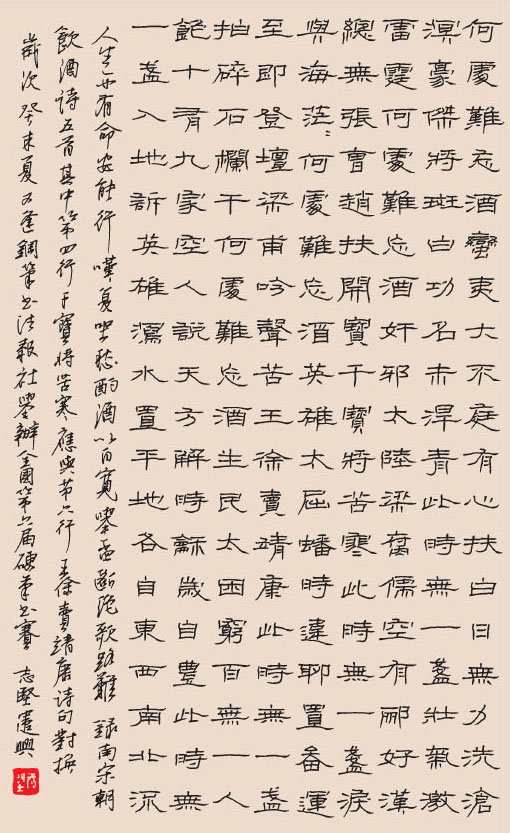 何處難忘酒蠻夷大不庭有心扶白日無力洗滄
溟豪傑將斑白功名未汗青此時無一盞壯氣激
雷霆何處難忘酒奸邪太陸梁腐儒空有郦好漢
總無張曹趙扶開寶干寶將苦寒此時無一盞淚
與海茫〻何處難忘酒英雄太屈蟠時違聊置畚運
至即登壇梁甫吟聲苦王徐賣靖康此時無一盞
拍碎石欄干何處難忘酒生民太困窮百無一人
飽十有九家空人說天方解時龢歲自豐此時無
一盞入地訴英雄瀉水置平地各自東西南北流
人生亦有命安能行嘆复坐愁酌酒以自寬舉杯斷絕歌路難 録南宋朝
飲酒詩五首其中第四行干寶將苦寒應與第六行王徐賣靖康詩句對換
歲次癸未夏逢鋼筆书法報社舉辦全國第六届硬筆书賽 志堅憲興